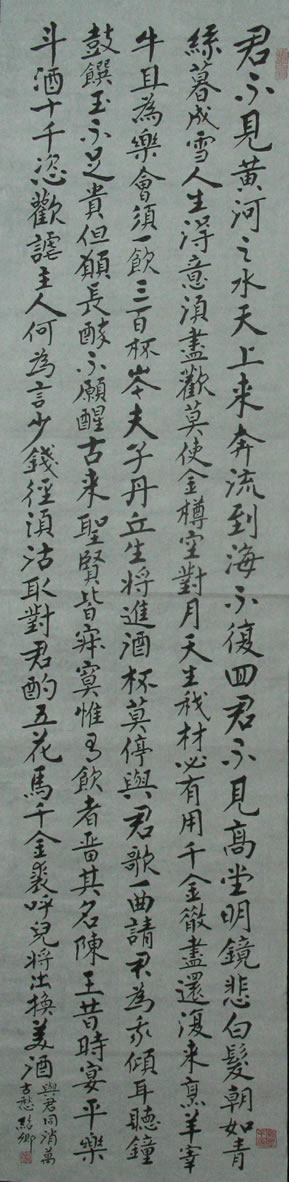 君不見黃河之水天上来奔流到海不復回君不見高堂明鏡悲白髮朝如青
絲暮成雪人生得意須盡歡莫使金樽空對月天生我材必有用千金散盡還復来烹羊宰
牛且為樂會須一飲三百杯岑夫子丹丘生将進酒杯莫停與君歌一曲請君為我傾耳聽鐘
鼓饌玉不足貴但願長醉不願醒古来聖賢皆寂寞惟有飲者留其名陳王昔時宴平樂
斗酒十千恣歡謔主人何為言少錢徑須沽取對君酌五花馬千金裘呼兒将出換美酒
與君同消萬
古愁